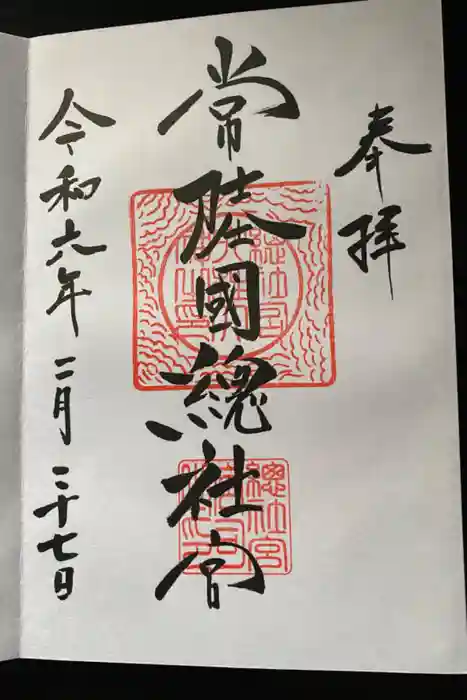 奉拝
常陸國總社宮
令和六年二月二十七日
總社宮